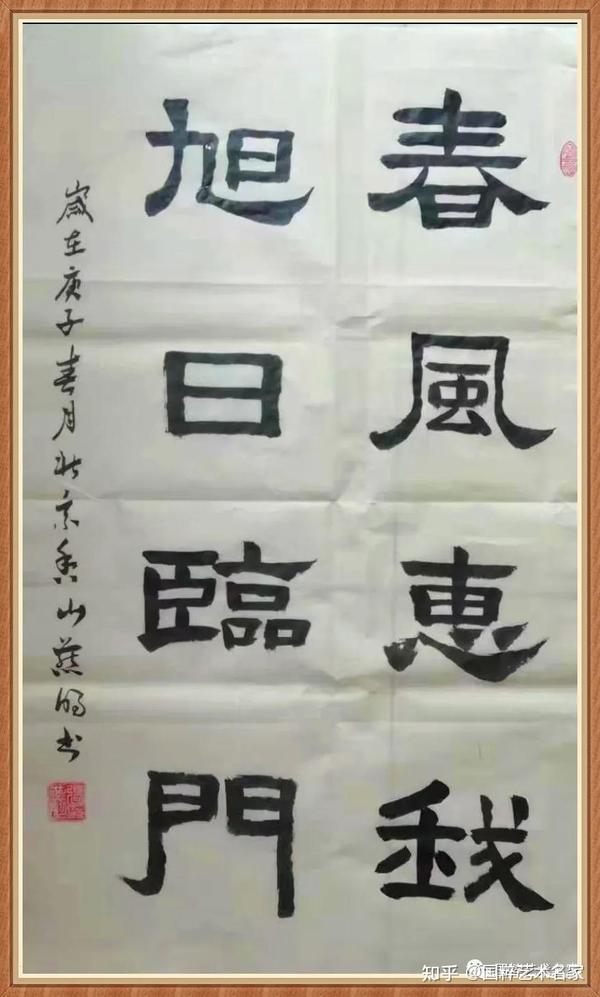 春風惠我
旭日臨門
歲在庚子春月於京香山明书
知乎 @国粹艺术名家